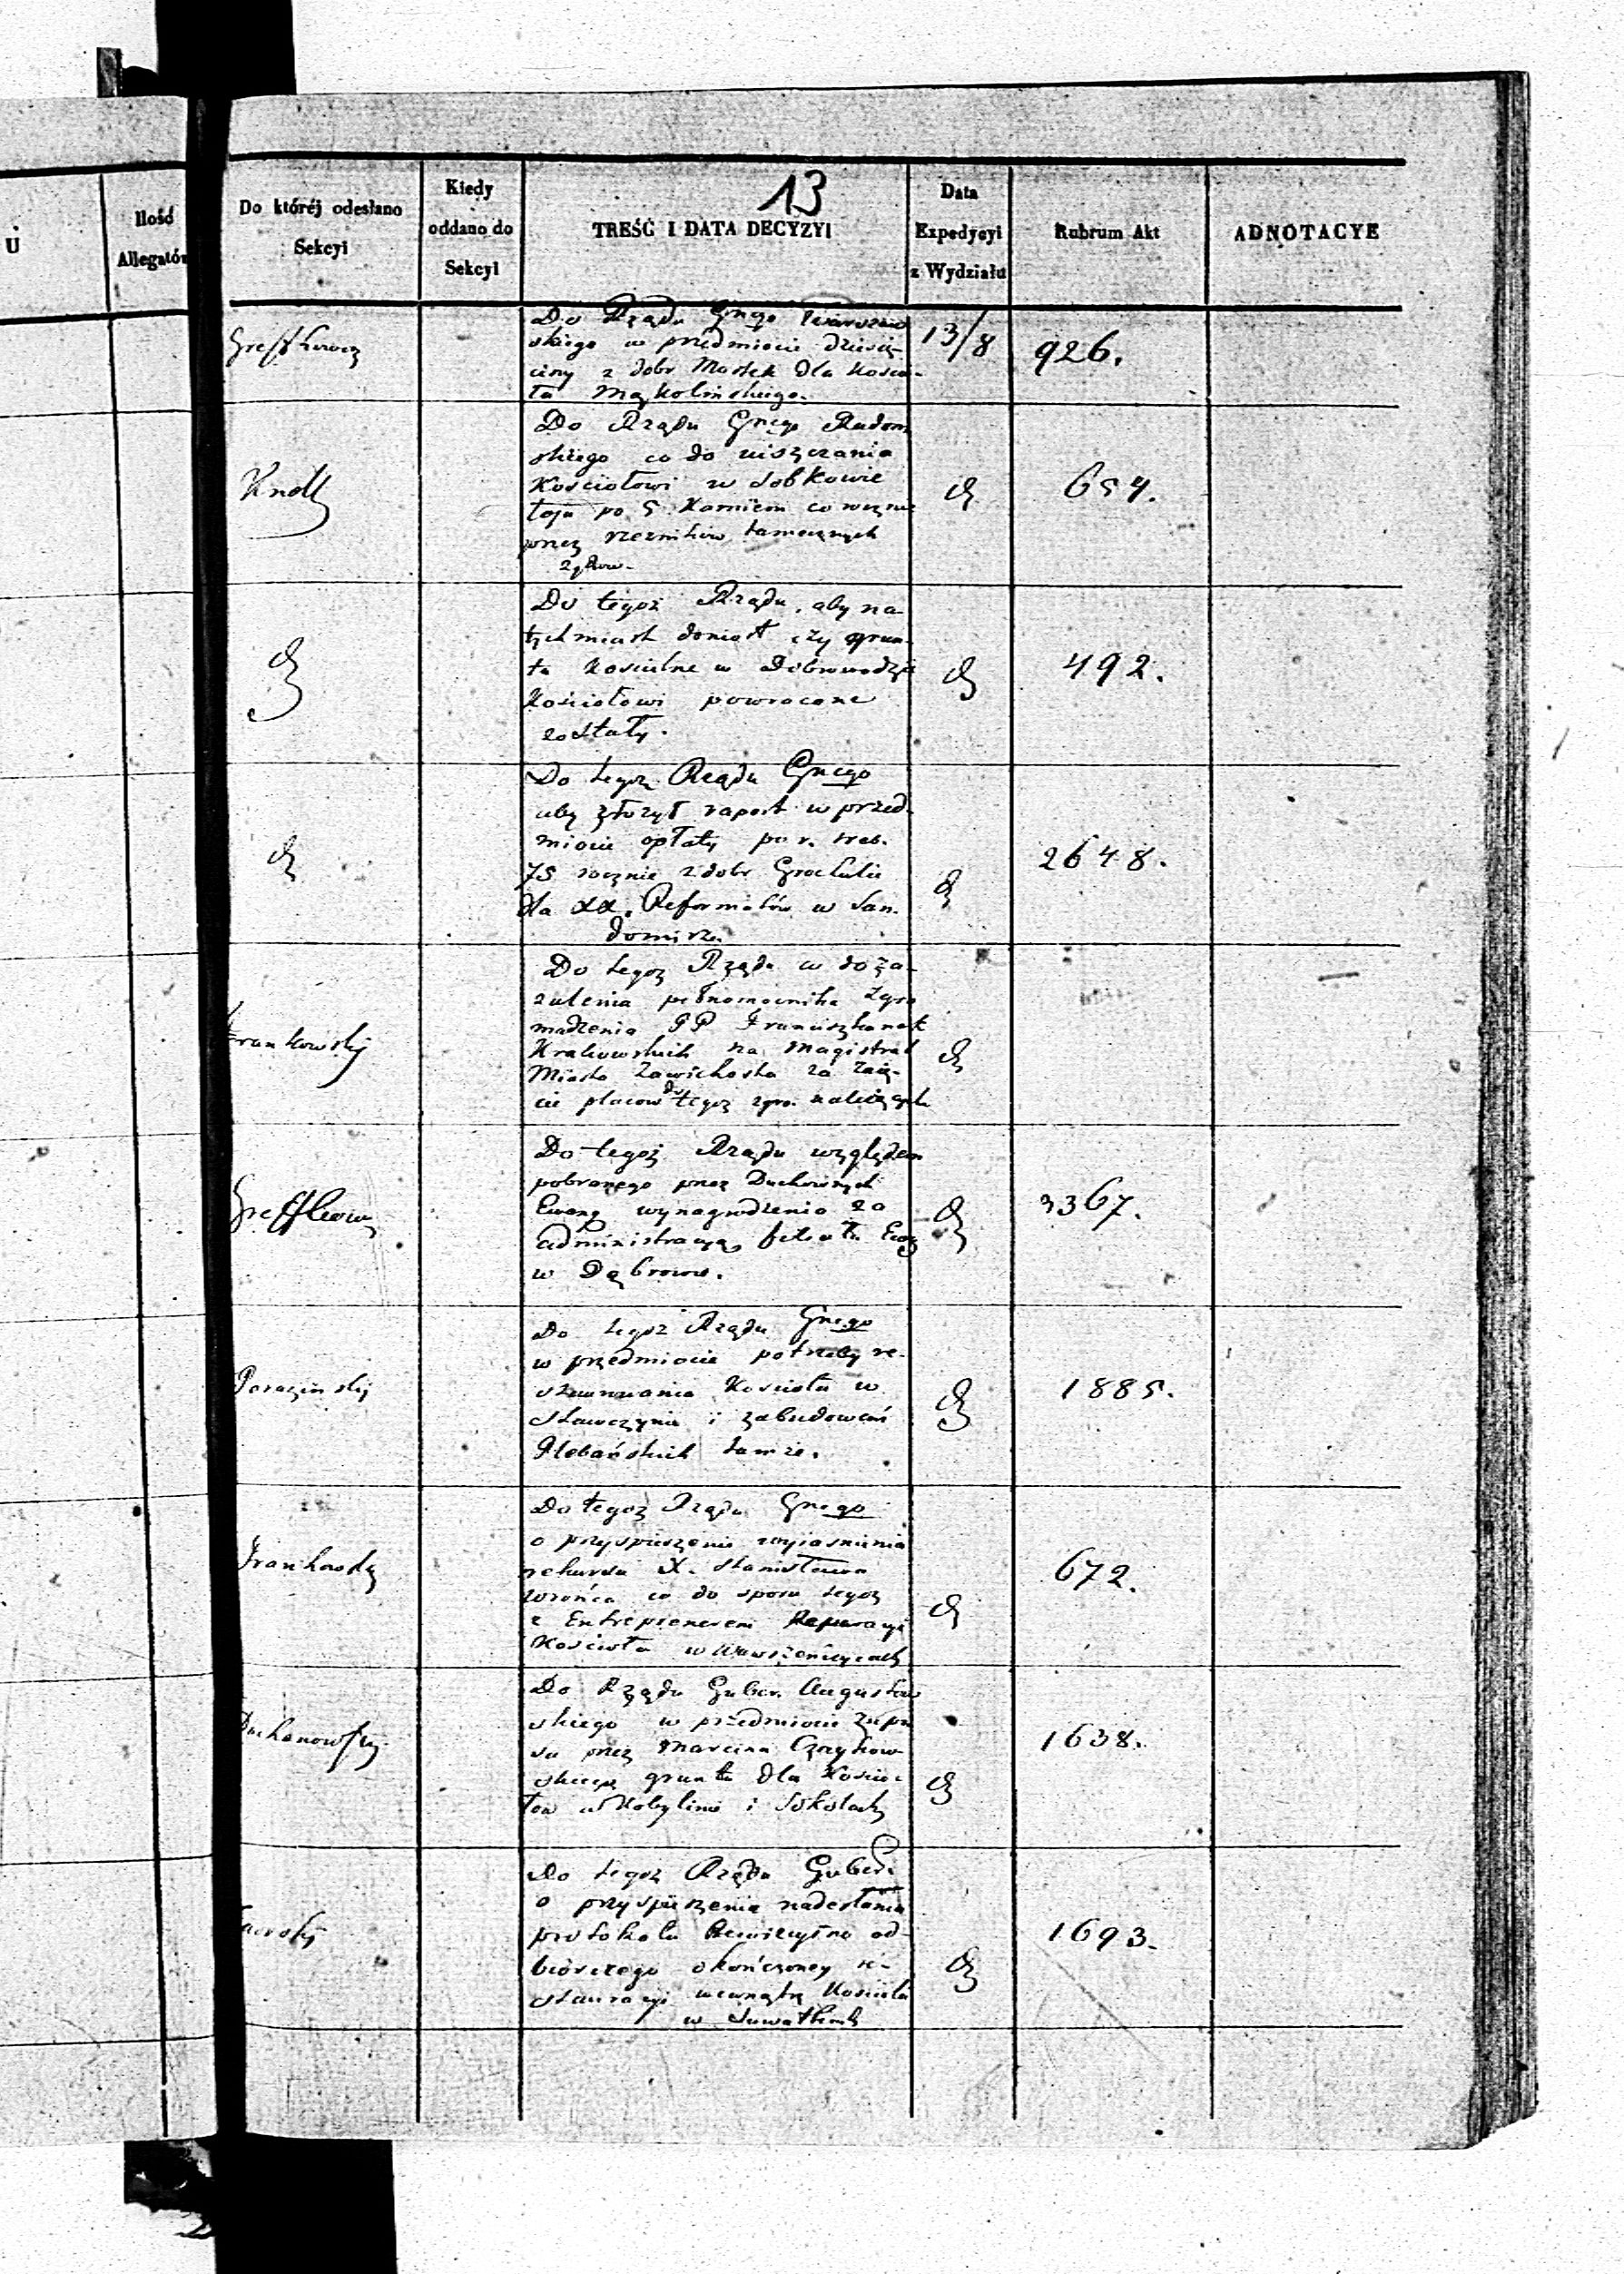 U
Ilość
Allegatów
Do któréj odesłano
Sekcyi
Kiedy
oddano do
Sekcyi
13
TREŚĆ I DATA DECYZYI
Data
Expedycyi
z Wydziału
Rubrum Akt
ADNOTACYE
Do Rządu Gnego Warszaw
skiego w przedmiocie dziesię-
ciny z dobr Mostek dla Kościo-
ła Mąkolińskiego.
13/8
926.
Knoll
Do Rządu Gnego Radom
skiego co do uiszczania
Kościołowi w Sobkowie
łoju po 5 Kamieni co rocznie
przez rzeźników tamecznych
654.
Do tegoż Rządu, aby na-
tychmiast doniosł czy grun-
ta Kościelne w Dobrowodzie
Kościołowi powrócone
zostały.
492.
Do tegoż Rządu Gnego
aby złożył raport w przed-
miocie opłaty po r. sreb.
75 rocznie z dobr
dla XX. Reformatów w San-
domirzu
2648.
Frankowski
Do tegoż Rządu w do za-
żalenia pełnomocnika Zgro
madzenia PP Franciszkanek
Krakowskich na Magistrat
Miasta Zawichosta za zaię-
cie placow do tegoż zgro. należących
Do tegoż Rządu względem
pobranego przez Duchownych
Ewang wynagrodzenia za
administracyą filiału Ewg
w Dąbrowie.
3367.
Do tegoż Rządu Gnego
w przedmiocie potrzeby re-
staurowania Kościoła w
i zabudowań
Plebańskich tamże.
1885.
Frankowski
Do tegoż Rządu Gnego
o przyspieszenie wyiasnienia
rekursu X. Stanisława
Wrońca co do sporu tegoż
z Entreprenerem Reparacyi
Kościoła w Wawrzeńczycach
672.
Do Rządu Guber. Augustow
skiego w przedmiocie Zapi
su przez Marcina
skiego gruntu dla Kościo-
łow w Kobylinie i Sokołach
1638.
Do tegoż Rządu Guber.
o przyspieszenie nadesłania
protokołu Rewizyjno od-
biorczego okończoney re-
stauracyi wewnątrz Kościoła
w Suwałkach
1693.